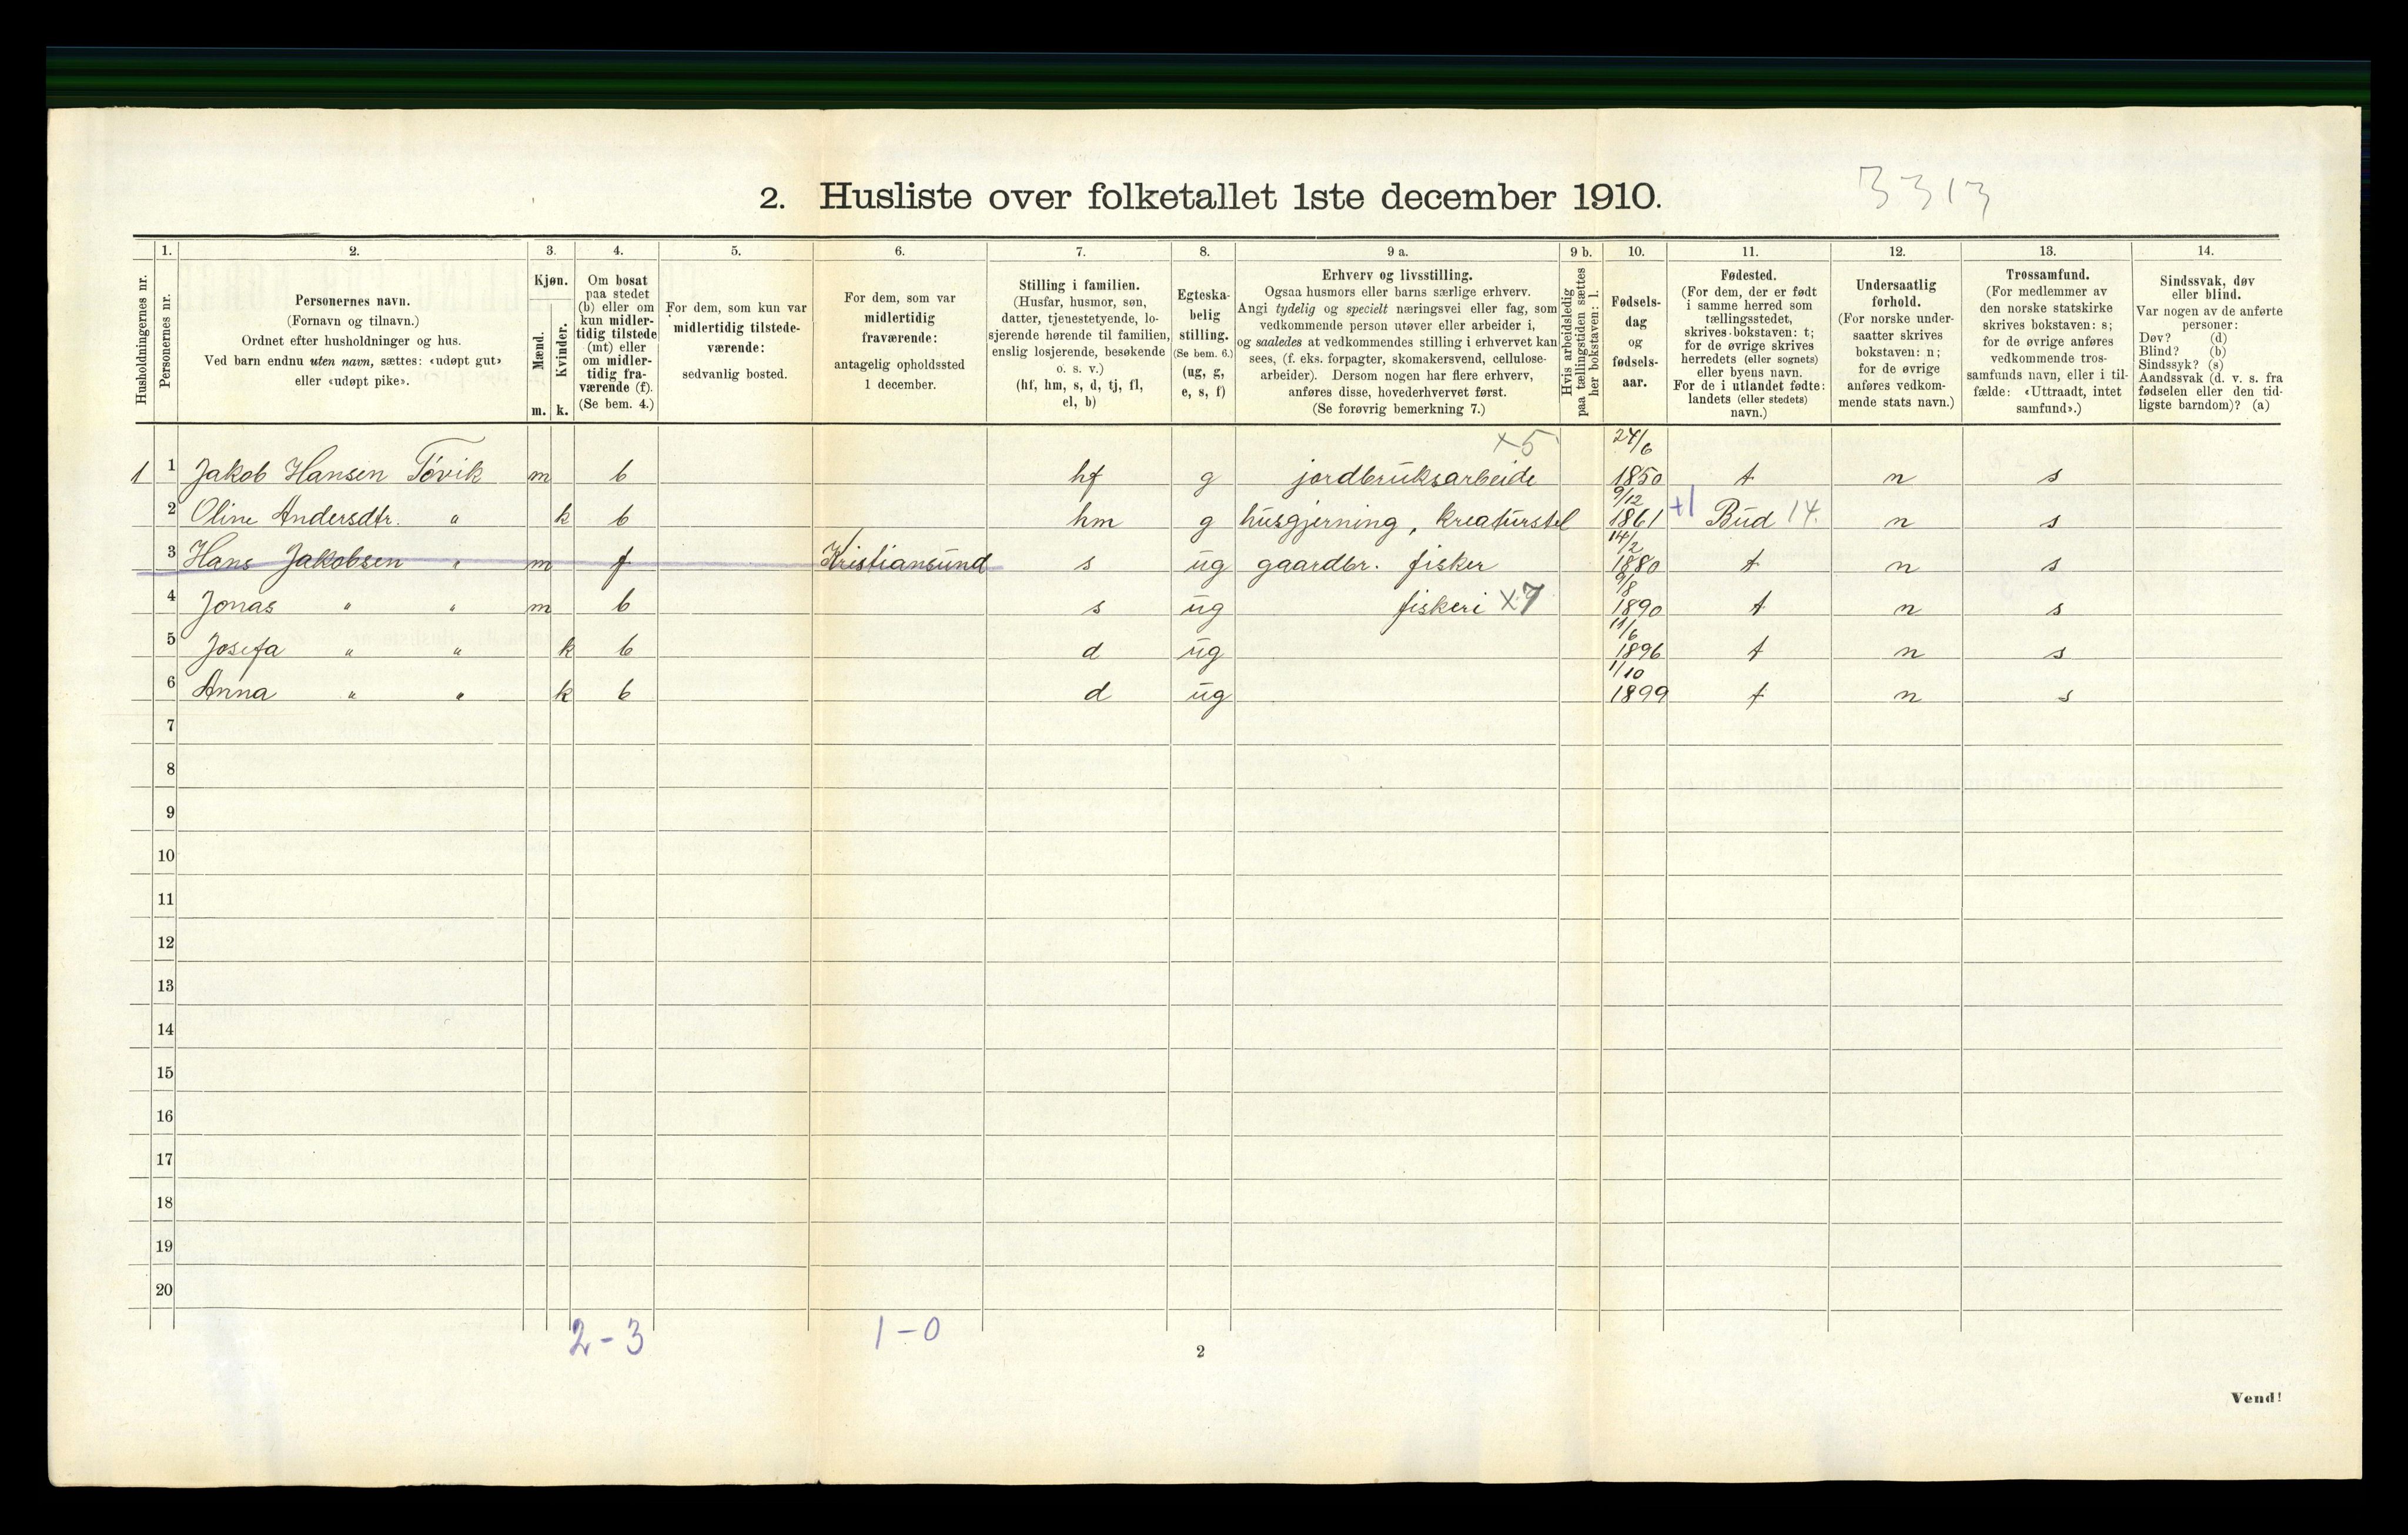 2. Husliste over folketallet 1ste december 1910.
3313
Husholdningernes nr.
1.
Personernes nr.
2.
Personernes navn.
(Fornavn og tilnavn.)
Ordnet efter husholdninger og hus.
Ved barn endnu uten navn, sættes: «udøpt gut»
eller «udøpt pike».
3.
Kjøn.
Mænd.
Kvinder.
m. k.
4.
Om bosat
paa stedet
(b) eller om
kun midler-
tidig tilstede
(mt) eller
om midler-
tidig fra-
værende (f).
(Se bem. 4.)
5.
For dem, som kun var
midlertidig tilstede-
værende:
sedvanlig bosted.
6.
For dem, som var
midlertidig
fraværende:
antagelig opholdssted
1 december.
7.
Stilling i familien.
(Husfar, husmor, søn,
datter, tjenestetyende, lo-
sjerende hørende til familien,
enslig losjerende, besøkende
o. s. v.)
(hf, hm, s, d, tj, fl,
el, b)
8.
Egteska-
belig
stilling.
(Se bem. 6.)
(ug, g,
e, s, f)
9 a.
Erhverv og livsstilling.
Ogsaa husmors eller barns særlige erhverv.
Angi tydelig og specielt næringsvei eller fag, som
vedkommende person utøver eller arbeider i,
og saaledes at vedkommendes stilling i erhvervet kan
sees, (f. eks. forpagter, skomakersvend, cellulose-
arbeider). Dersom nogen har flere erhverv,
anføres disse, hovederhvervet først.
(Se forøvrig bemerkning 7.)
9 b.
Hvis arbeidsledig
paa tællingstiden sættes
her bokstaven: l.
10.
Fødsels-
dag
og
fødsels-
aar.
11.
Fødested.
(For dem, der er født
i samme herred som
tællingsstedet,
skrives bokstaven: t;
for de øvrige skrives
herredets (eller sognets)
eller byens navn.
For de i utlandet fødte:
landets (eller stedets)
navn.)
12.
Undersaatlig
forhold.
(For norske under-
saatter skrives
bokstaven: n;
for de øvrige
anføres vedkom-
mende stats navn.)
13.
Trossamfund.
(For medlemmer av
den norske statskirke
skrives bokstav: s;
for de øvrige anføres
vedkommende tros-
samfunds navn, eller i til-
fælde: «Uttraadt, intet
samfund».)
14.
Sindssvak, døv
eller blind.
Var nogen av de anførte
personer:
Døv? (d)
Blind? (b)
Sindssyk? (s)
Aandssvak (d. v. s. fra
fødselen eller den tid-
ligste barndom)? (a)
1 1 Jakob Hansen Tóvik m b hf g jordbruksarbeide ×5 24/6 1850 t n s
2 Oline Andersdtr. " k b hm g husgjerning, kreaturstel 9/12 1861 +1 Bud 14. n s
3 Hans Jakobsen " m f Kristiansund s ug gaardbr. fisker 14/2 1880 t n s
4 Jonas " " m b s ug fiskeri ×7 9/8 1890 t n s
5 Josefa " " k b d ug 11/6 1896 t n s
6 Anna " " k b d ug 1/10 1899 t n s
7
8
9
10
11
12
13
14
15
16
17
18
19
20
2-3 1-0
2
Vend!